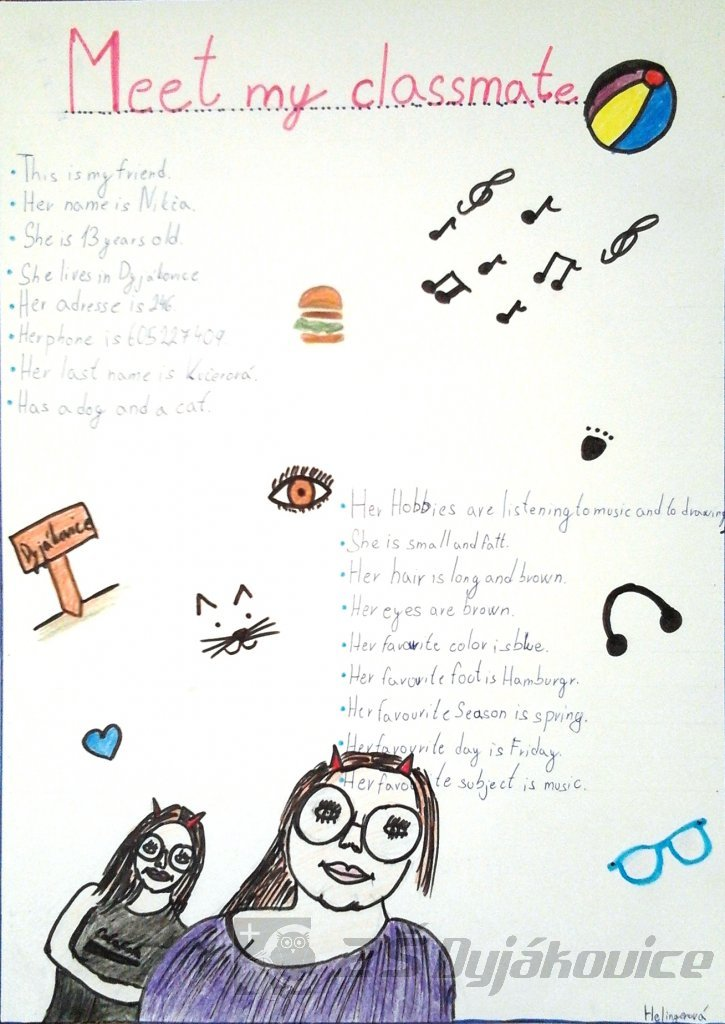 Meet my classmate
• This is my friend.
• Her name is Nikča.
• She is 13 years old.
• She lives in Dyjákovice
• Her adresse is 246.
• Her phone is 605227409.
• Her last name is Kučerová.
• Has a dog and a cat.
Dyjákovice
• Her Hobbies are listening to music and to drawing
• She is small and fatt.
• Her hair is long and brown.
• Her eyes are brown.
• Her favorite color is blue.
• Her favorite foot is Hamburgr.
• Her favourite Season is spring.
• Her favourite day is Friday.
• Her favourite subject is music.
ZŠ Dyjákovice
Helingerová